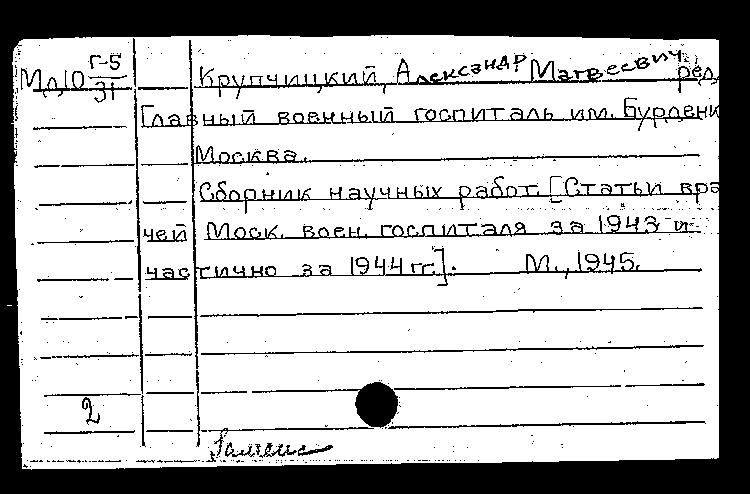 Мл10 Г-5/31 Крупчицкий, Александр Матвеевич ред.
Главный военный госпиталь им. Бурденк
Москва.
Сборник научных работ. [Статьи вра
чей Моск. воен. госпиталя за 1943 и
частично за 1944 гг]. М., 1945.
2